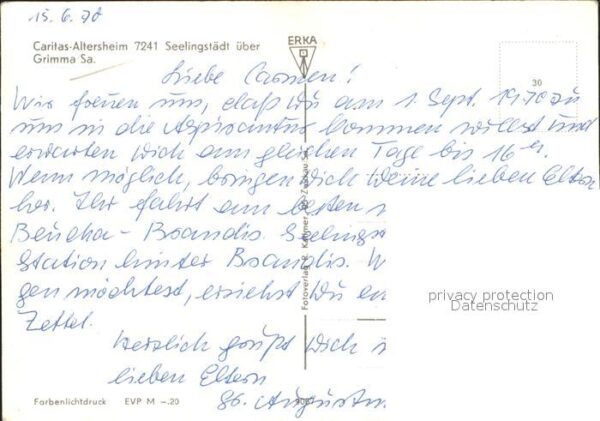 15. 6. 70
Caritas-Altersheim 7241 Seelingstädt über
Grimma Sa.
ERKA
30
Liebe Carmen!
Wir freuen uns, daß Du am 1. Sept. 1970 zu
uns in die Aspirantur kommen willst und
erwarten Dich am gleichen Tage bis 16 
Wenn möglich, bringen Dich Deine lieben Eltern
her. Ihr fahrt am besten
Beucha - Brandis. Seelings
Station hinter Brandis. W
gen möchtest, ersiehst Du
Zettel.
Herzlich grüßt Dich
lieben Eltern
Fotoverlag R. Kallmer
privacy protection
Datenschutz
Farbenlichtdruck EVP M –.20